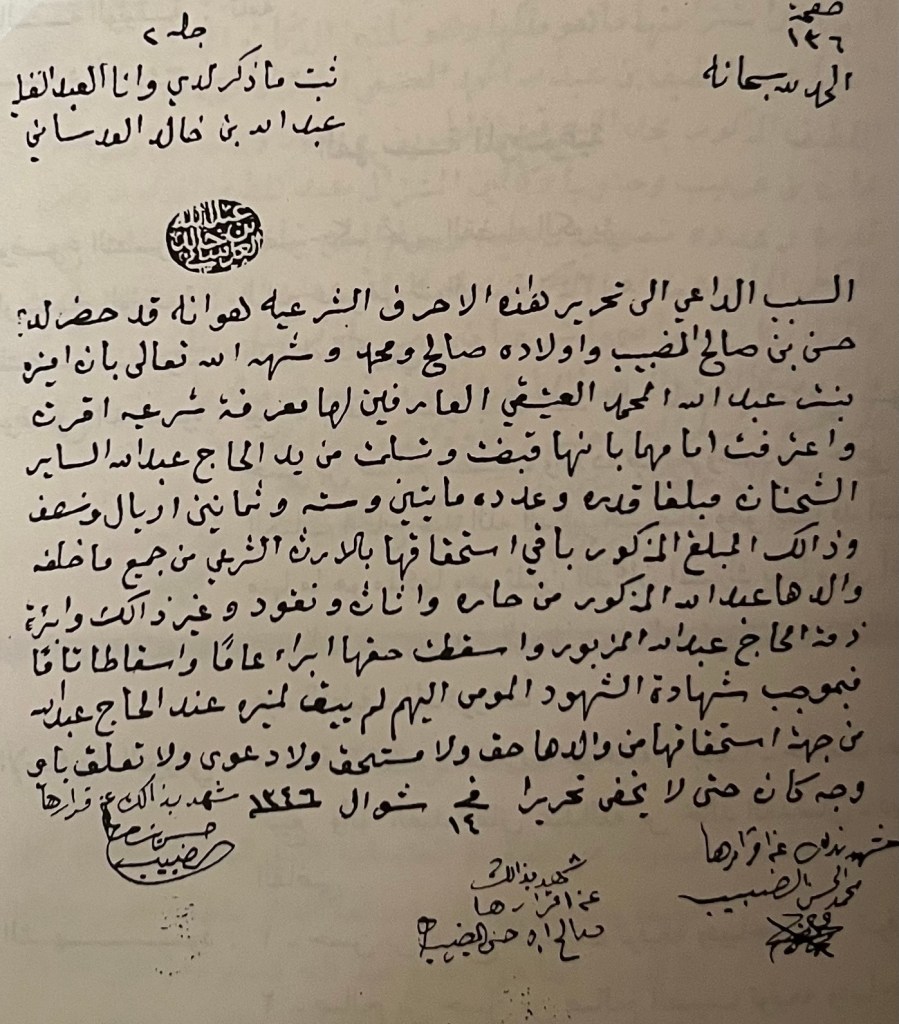 صفحة
١٣٦
جلد ٢
الحمد لله سبحانه
ثبت ما ذكر لدي وانا العبد
عبد الله بن خالد العدساني
عبد الله
بن خالد
العدساني
السبب الداعي الى تحرير هذه الاحرف الشرعيه هو انه قد حضر
حسن بن صالح المضيبب واولاده صالح ومحمد وشهد الله تعالى بان
بنت عبد الله المحمد العارفين لها معرفة شرعيه اقرت
واعترفت امامهما بانها قبضت وتسلمت من يد الحاج عبد الله الساير
الشحنان مبلغا قدره وعدده مايتين وسته وثمانين اريال ونصف
وذالك المبلغ المذكور باقي استحقاقها بالارث الشرعي من جميع ما خلفه
والدها عبد الله المذكور من حاره واثاث ونقود وغير ذالك وابرئة
ذمة الحاج عبد الله المزبور واسقطت حقها ابراء عامًا واسقاطا تامًا
فبموجب شهادة الشهود المومى اليهم لم يبق لمنيره عند الحاج عبد الله
من جهة استحقاقها من والدها حق ولا مستحق ولا دعوى ولا تعلق باي
وجه كان حتى لا يخفى تحريرا في ١٤ شوال ١٣٤٦
شهد بذالك عن قرارها
حسن بن صالح
المضيبب
شهد بذلك عن اقرارها
محمد الحسن المضيبب
شهيد بذالك
عن اقرارها
صالح ابن حسن المضيبب